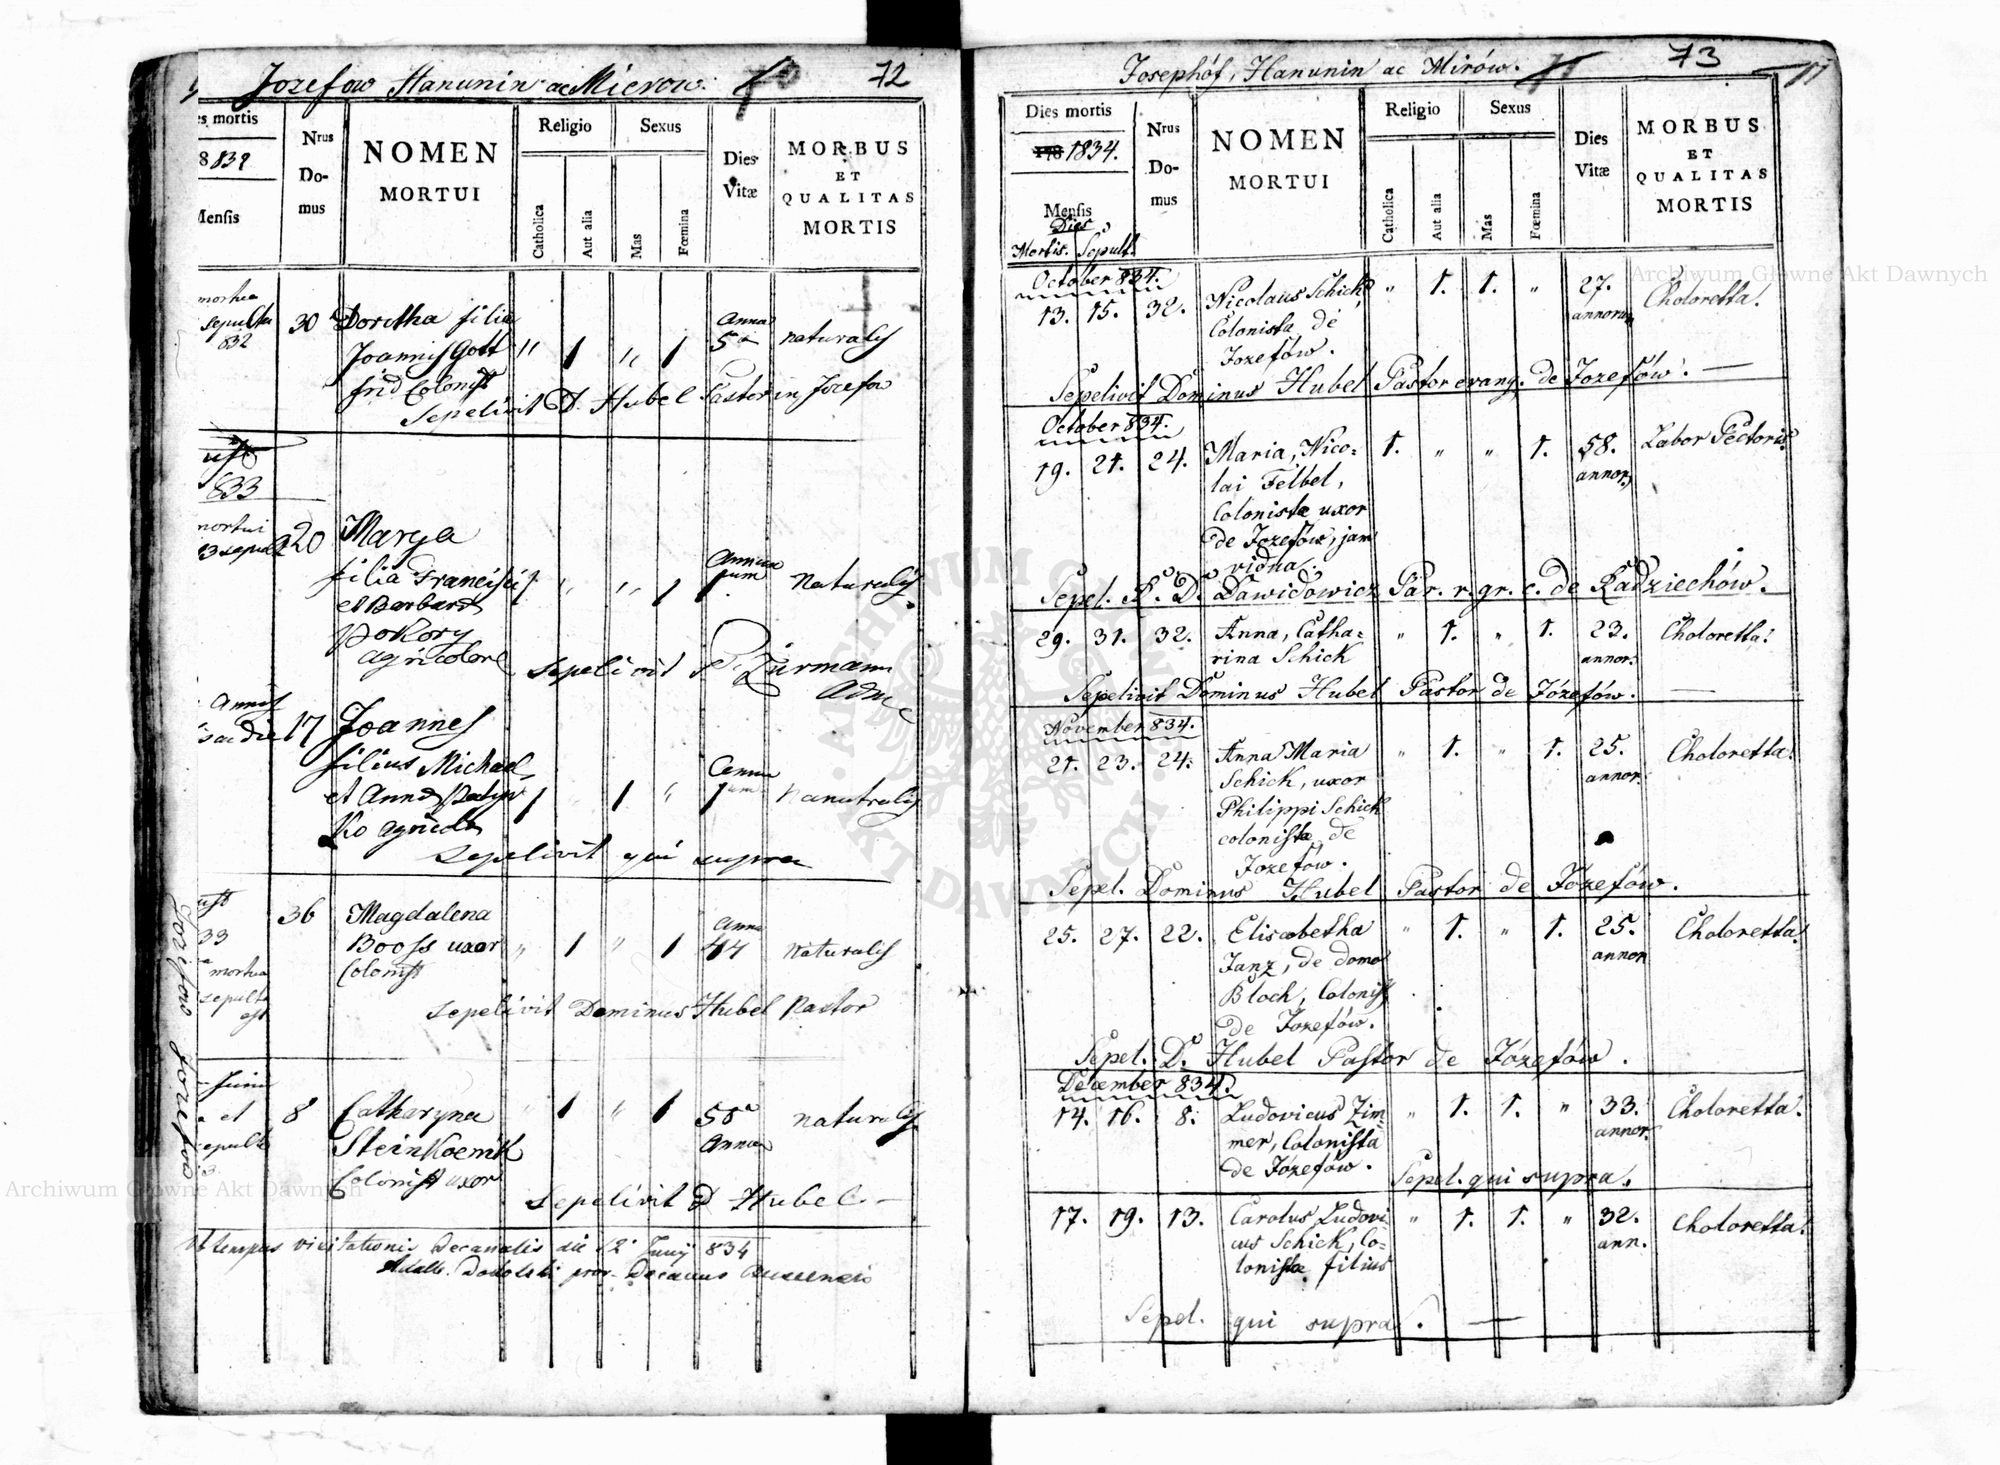 Jozefow Hanunin ac Mierow. 72
es mortis
8832
Mensis
Nrus
Do-
mus
NOMEN
MORTUI
Religio
Catholica
Aut alia
Sexus
Mas
Fœmina
Dies
Vitæ
MORBUS
ET
QUALITAS
MORTIS
mortua
sepulta
832
30 Dorotha filia
Joannis Gott
frid Colonist
" 1 " 1
Anna
5
naturalis
Sepelivit D. Hubel Pastor in Jozefow
833
mortui
sepul
20 Marya
filia Francisci
et Barbara
Pokory
agricolore
1 " " 1
Annum
1um
naturalis
Sepelivit P. Zurmann
Adm
17 Joannes
filius Michael
et Anna
ko agricola
1 " 1 "
Annum
1um
Nanutralis
Sepelivit qui supra
ust
33
mortua
sepulta
est
36 Magdalena
Booss uxor
Colonist
" 1 " 1
Anna
47
naturalis
Sepelivit Dominus Hubel Pastor
Junii
et
epulta
8 Catharyna
Steinkoenik
Colonist uxor
" 1 " 1
50
Annum
naturalis
Sepelivit D Hubel
tempus visitationis Decanalis die 12 Junij 834
Decanus
Josephóf, Hanunin ac Mirów. 73
Dies mortis
178 1834.
Mensis
Dies
Mortis. Sepult.
Nrus
Do-
mus
NOMEN
MORTUI
Religio
Catholica
Aut alia
Sexus
Mas
Fœmina
Dies
Vitæ
MORBUS
ET
QUALITAS
MORTIS
October 834.
13. 15. 32. Nicolaus Schick,
Colonista de
Jozefów.
" 1. 1. "
27.
annorum
Choloretta.
Sepelivit Dominus Hubel Pastor evang. de Jozefów. —
October 834.
19. 21. 24. Maria, Nico-
lai Felbel,
Colonistæ uxor
de Jozefów, jam
vidna.
1. " " 1.
58.
annor.
Labor Pectoris.
Sepel. R. D. Dawidowicz Par. r. gr. c. de Radziechów.
29. 31. 32. Anna, Catha-
rina Schick
" 1. " 1.
23.
annor.
Choloretta.
Sepelivit Dominus Hubel Pastor de Józefów. —
November 834.
21. 23. 24. Anna Maria
Schick, uxor
Philippi Schick
colonistæ de
Jozefów.
" 1. " 1.
25.
annor.
Choloretta.
Sepel. Dominus Hubel Pastor de Józefów.
25. 27. 22. Elisabetha
Janz, de domo
Bloch, Colonist
de Jozefów.
" 1. " 1.
25.
annor
Choloretta.
Sepel. D. Hubel Pastor de Józefów.
December 834.
14. 16. 8. Ludovicus Zim-
mer, Colonista
de Józefów.
" 1. 1. "
33.
annor.
Choloretta.
Sepel. qui supra.
17. 19. 13. Carolus Ludovi-
cus Schick, Co-
lonistæ filius
" 1. 1. "
32.
ann.
Choloretta.
Sepel. qui supra. —
Archiwum Główne Akt Dawnych
Archiwum Główne Akt Dawnych
ARCHIWUM GŁÓWNE
AKT DAWNYCH